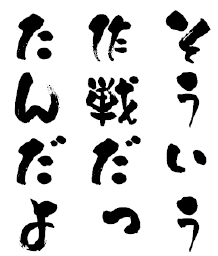 そういう
作戦だっ
たんだよ